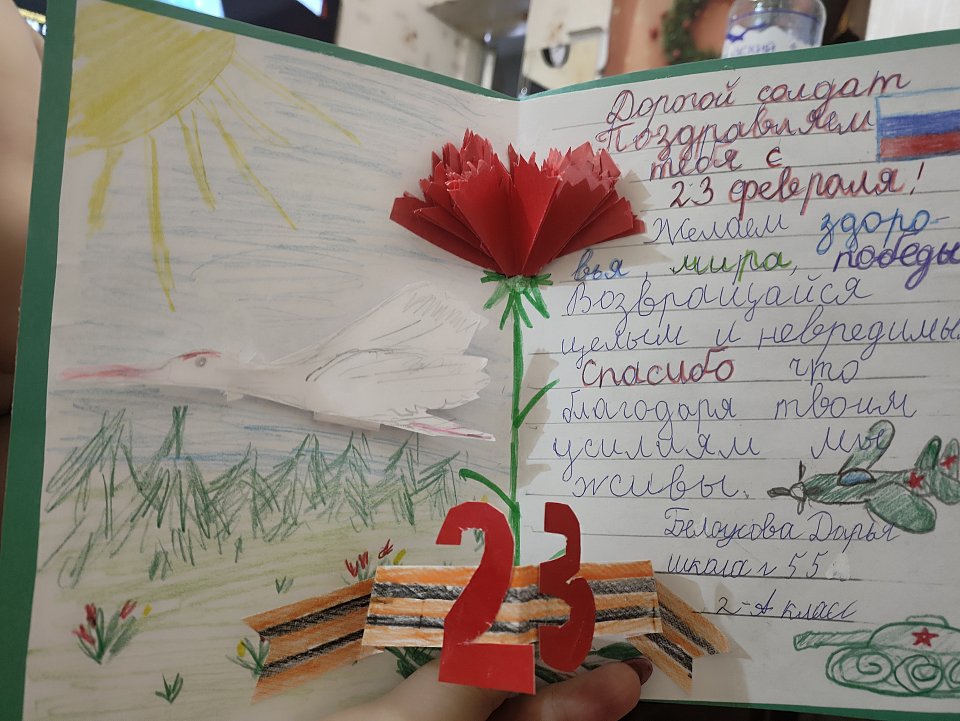 Дорогой солдат
Поздравляем
тебя с
23 февраля!
Желаем здоро-
вья, мира, победы
Возвращайся
целым и невредимы
Спасибо что
благодаря твоим
усилиям мы
живы.
Белоусова Дарья
школа 55
2-А класс
23